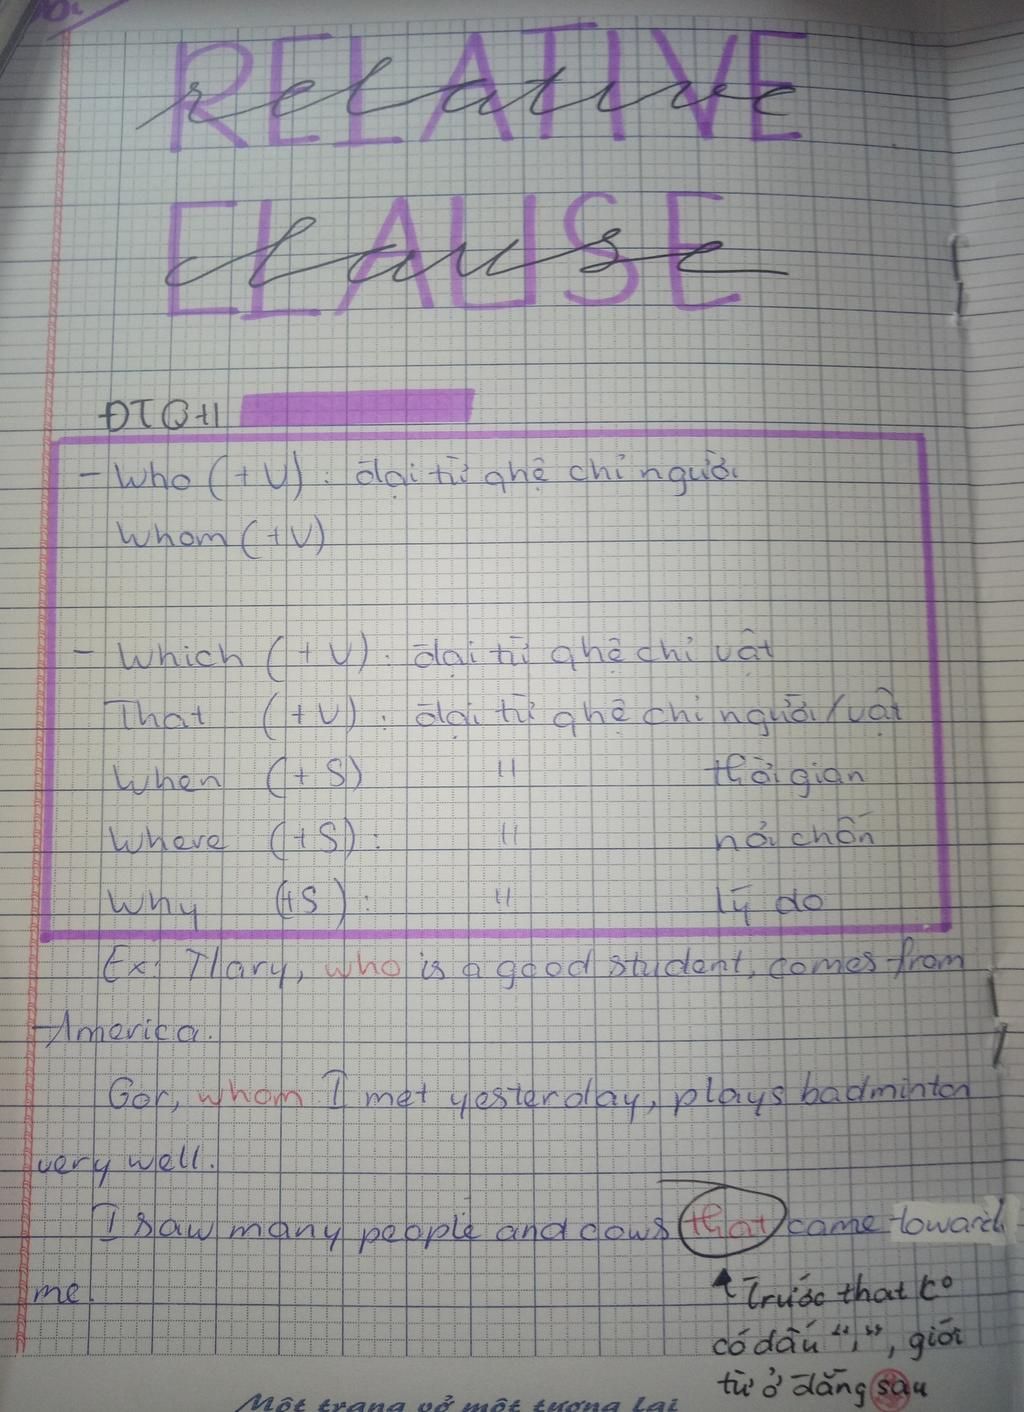 RELATIVE
relative
CLAUSE
clause
ĐTQH
- Who (+V): đại từ qhệ chỉ người
Whom (+V)
- Which (+V): đại từ qhệ chỉ vật
That (+V): đại từ qhệ chỉ người/vật
When (+S) " thời gian
Where (+S): " nơi chốn
Why (+S): " lý do
Ex: Mary, who is a good student, comes from
America.
Gor, whom I met yesterday, plays badminton
very well.
I saw many people and cows that came toward
me.
Trước that k°
có dấu ",", giới
từ ở đằng sau
Một trang vở một tương lai